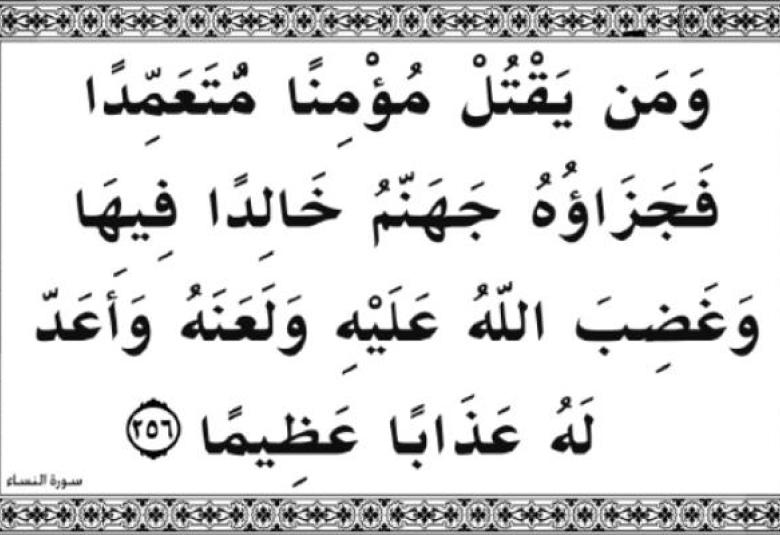 وَمَن يَقْتُلْ مُؤْمِنًا مُّتَعَمِّدًا
فَجَزَاؤُهُ جَهَنَّمُ خَالِدًا فِيهَا
وَغَضِبَ اللّهُ عَلَيْهِ وَلَعَنَهُ وَأَعَدَّ
لَهُ عَذَابًا عَظِيمًا ٢٥٦
سورة النساء